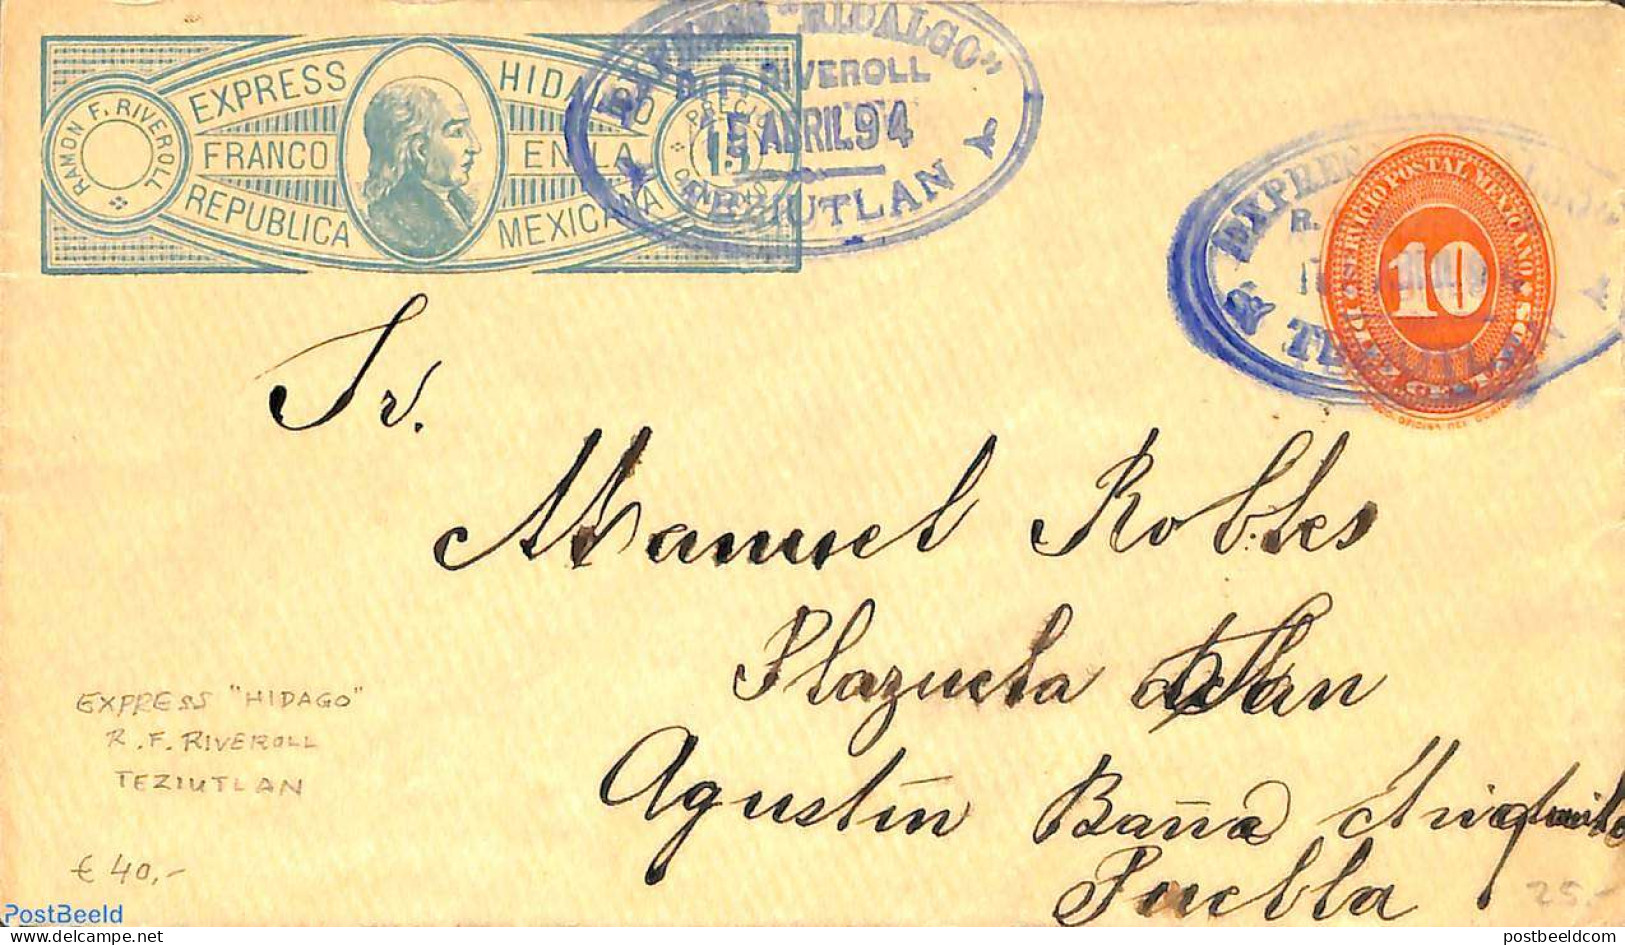 RAMON F. RIVEROLL
EXPRESS HIDALGO
FRANCO EN LA
REPUBLICA MEXICANA
PRECIO
15
CENTAVO
EXPRESS "HIDALGO"
R. F. RIVEROLL
15 ABRIL 94
TEZIUTLAN
EXPRESS
R.
TEZIUTLAN
SERVICIO POSTAL MEXICANO
10
DIEZ CENTAVOS
Sr.
Manuel Robles
Plazuela de San
Agustín Baña
Puebla
EXPRESS "HIDAGO"
R. F. RIVEROLL
TEZIUTLAN
€ 40,-
25.-
PostBeeld
postbeeldcom